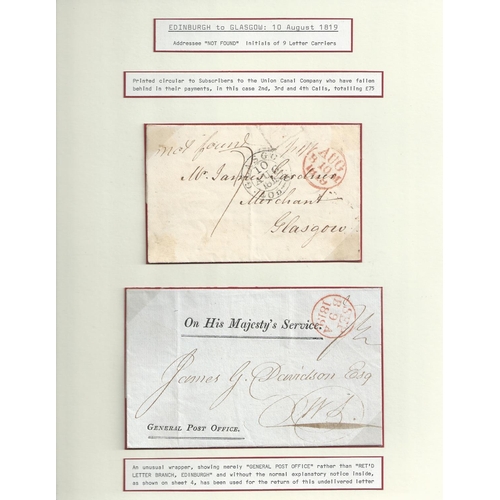 EDINBURGH to GLASGOW: 10 August 1819
Addressee "NOT FOUND" initials of 9 Letter Carriers
Printed circular to Subscribers to the Union Canal Company who have fallen
behind in their payments, in this case 2nd, 3rd and 4th Calls, totalling £75
not found
AUG
Mr. James Gardner
Merchant
Glasgow
On His Majesty's Service.
James G. Davidson Esq
W.S.
GENERAL POST OFFICE.
An unusual wrapper, showing merely "GENERAL POST OFFICE" rather than "RET'D
LETTER BRANCH, EDINBURGH" and without the normal explanatory notice inside,
as shown on sheet 4, has been used for the return of this undelivered letter